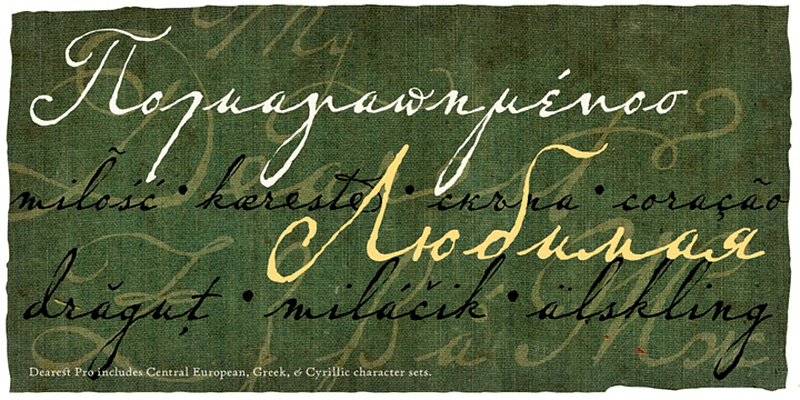 Πολυαγαπημένοσ
miłość • kærestes • скъпа • coração
Любимая
drăguț • miláčik • älskling
Dearest Pro includes Central European, Greek, & Cyrillic character sets.